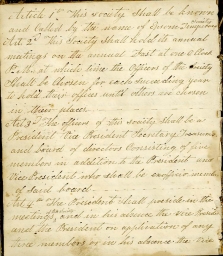 Article 1st This Society Shall be known
and Called by the name of
Art 2d This Society Shall hold its annual
meetings on the annual Fast at one o'clock
P.M. at which time the officers of the Society
Shall be Chosen for each succeeding year
to hold their office until others are chosen
in their place
Art 3d The officers of this Society shall be a
President Vice President Secretary Treasurer
and board of directors Consisting of five
members in addition to the President and
Vice President who shall be members
of said board
Art 4th The President Shall preside in the
meetings and in his absence the vice Presi
and the President on application of any
three members or in his absence the vice